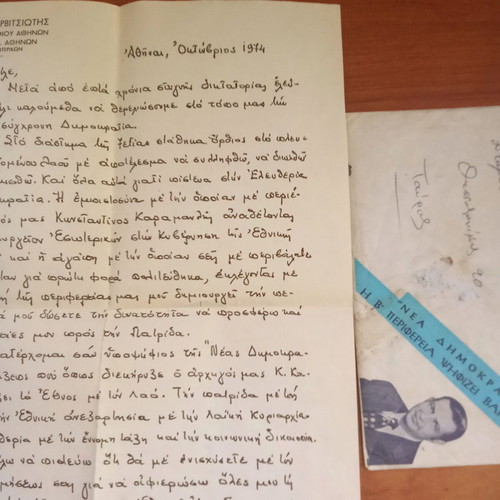 ΡΒΙΤΣΙΩΤΗΣ
ΙΟΥ ΑΘΗΝΩΝ
Σ ΑΘΗΝΩΝ
Ἀθῆναι, Ὀκτώβριος 1974
λε,
Μετά ἀπό ἑπτά χρόνια στυγνῆς δικτατορίας
καλούμεθα νά θεμελιώσωμε στό τόπο μας τήν
σύγχρονη Δημοκρατία.
Στό διάστημα τῆς στάθηκα ὄρθιος στό
Λαοῦ μέ ἀποτέλεσμα νά συλληφθῶ, νά διωχθῶ
Καί ὅλα αὐτά γιατί πίστευα στήν Ἐλευθερία
κρατία. Ἡ ἐμπιστοσύνη μέ τήν ὁποίαν μέ
ός μας Κωνσταντῖνος Καραμανλῆς ἀναθέτοντας
ουργεῖον Ἐσωτερικῶν στήν Κυβέρνηση τῆς Ἐθνικῆς
καί ἡ ἀγάπη μέ τήν ὁποίαν σεῖς μέ περιβάλατε
αν γιά πρώτη φορά πολιτεύθηκα, ἐκλέγοντάς με
τῆς περιφερείας μας μοῦ δημιουργεῖ τήν πε
ά μοῦ δώσετε τήν δυνατότητα νά προσφέρω καί
μου πρός τήν Πατρίδα.
ατέρχομαι σάν ὑποψήφιος τῆς "Νέας Δημοκρα
ξεως πού ὅπως διεκήρυξε ὁ ἀρχηγός μας Κ. Κα
ζει τό Ἔθνος μέ τόν Λαό. Τήν πατρίδα μέ τή
ήν Ἐθνική ἀνεξαρτησία μέ τήν Λαϊκή Κυριαρχία
θερία μέ τήν ἔννομη τάξη καί τήν κοινωνική δικαιοσύνη.
λω νά πιστεύω ὅτι θά μέ ἐνισχύσετε μέ τήν
σας γιά νά ἀφιερώσω ὅλες μου τίς
20
Ταῦρος
ΝΕΑ ΔΗΜΟΚΡΑ
Η Β΄ ΠΕΡΙΦΕΡΕΙΑ ΨΗΦΙΖΕΙ ΒΑ